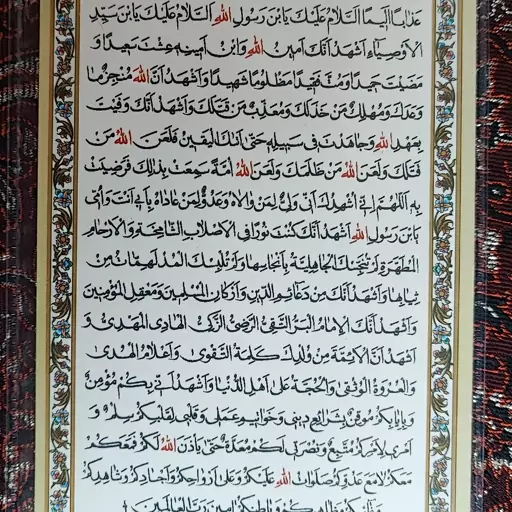 عَذَابًا اَلِيمًا اَلسَّلَامُ عَلَيْكَ يَا بْنَ رَسُولِ اللهِ اَلسَّلَامُ عَلَيْكَ يَا بْنَ سَيِّدِ
الْاَوْصِيَاءِ اَشْهَدُ اَنَّكَ اَمِينُ اللهِ وَابْنُ اَمِينِهِ عِشْتَ سَعِيدًا وَ
مَضَيْتَ حَمِيدًا وَمُتَّ فَقِيدًا مَظْلُومًا شَهِيدًا وَاَشْهَدُ اَنَّ اللهَ مُنْجِزٌ مَا
وَعَدَكَ وَمُهْلِكٌ مَنْ خَذَلَكَ وَمُعَذِّبٌ مَنْ قَتَلَكَ وَاَشْهَدُ اَنَّكَ وَفَيْتَ
بِعَهْدِ اللهِ وَجَاهَدْتَ فِي سَبِيلِهِ حَتّٰى اَتٰيكَ الْيَقِينُ فَلَعَنَ اللهُ مَنْ
قَتَلَكَ وَلَعَنَ اللهُ مَنْ ظَلَمَكَ وَلَعَنَ اللهُ اُمَّةً سَمِعَتْ بِذٰلِكَ فَرَضِيَتْ
بِهِ اَللّٰهُمَّ اِنِّي اُشْهِدُكَ اَنِّي وَلِيٌّ لِمَنْ وَالَاهُ وَعَدُوٌّ لِمَنْ عَادَاهُ بِاَبِي اَنْتَ وَاُمِّي
يَا بْنَ رَسُولِ اللهِ اَشْهَدُ اَنَّكَ كُنْتَ نُورًا فِي الْاَصْلَابِ الشَّامِخَةِ وَالْاَرْحَامِ
الْمُطَهَّرَةِ لَمْ تُنَجِّسْكَ الْجَاهِلِيَّةُ بِاَنْجَاسِهَا وَلَمْ تُلْبِسْكَ الْمُدْلَهِمَّاتُ مِنْ
ثِيَابِهَا وَاَشْهَدُ اَنَّكَ مِنْ دَعَائِمِ الدِّينِ وَاَرْكَانِ الْمُسْلِمِينَ وَمَعْقِلِ الْمُؤْمِنِينَ
وَاَشْهَدُ اَنَّكَ الْاِمَامُ الْبَرُّ التَّقِيُّ الرَّضِيُّ الزَّكِيُّ الْهَادِي الْمَهْدِيُّ وَ
اَشْهَدُ اَنَّ الْاَئِمَّةَ مِنْ وُلْدِكَ كَلِمَةُ التَّقْوٰى وَاَعْلَامُ الْهُدٰى
وَالْعُرْوَةُ الْوُثْقٰى وَالْحُجَّةُ عَلٰى اَهْلِ الدُّنْيَا وَاَشْهَدُ اَنِّي بِكُمْ مُؤْمِنٌ
وَبِاِيَابِكُمْ مُوقِنٌ بِشَرَائِعِ دِينِي وَخَوَاتِيمِ عَمَلِي وَقَلْبِي لِقَلْبِكُمْ سِلْمٌ وَ
اَمْرِي لِاَمْرِكُمْ مُتَّبِعٌ وَنُصْرَتِي لَكُمْ مُعَدَّةٌ حَتّٰى يَأْذَنَ اللهُ لَكُمْ فَمَعَكُمْ
مَعَكُمْ لَا مَعَ عَدُوِّكُمْ صَلَوَاتُ اللهِ عَلَيْكُمْ وَعَلٰى اَرْوَاحِكُمْ وَاَجْسَادِكُمْ وَشَاهِدِكُمْ
وَغَائِبِكُمْ وَظَاهِرِكُمْ وَبَاطِنِكُمْ اٰمِينَ رَبَّ الْعَالَمِينَ